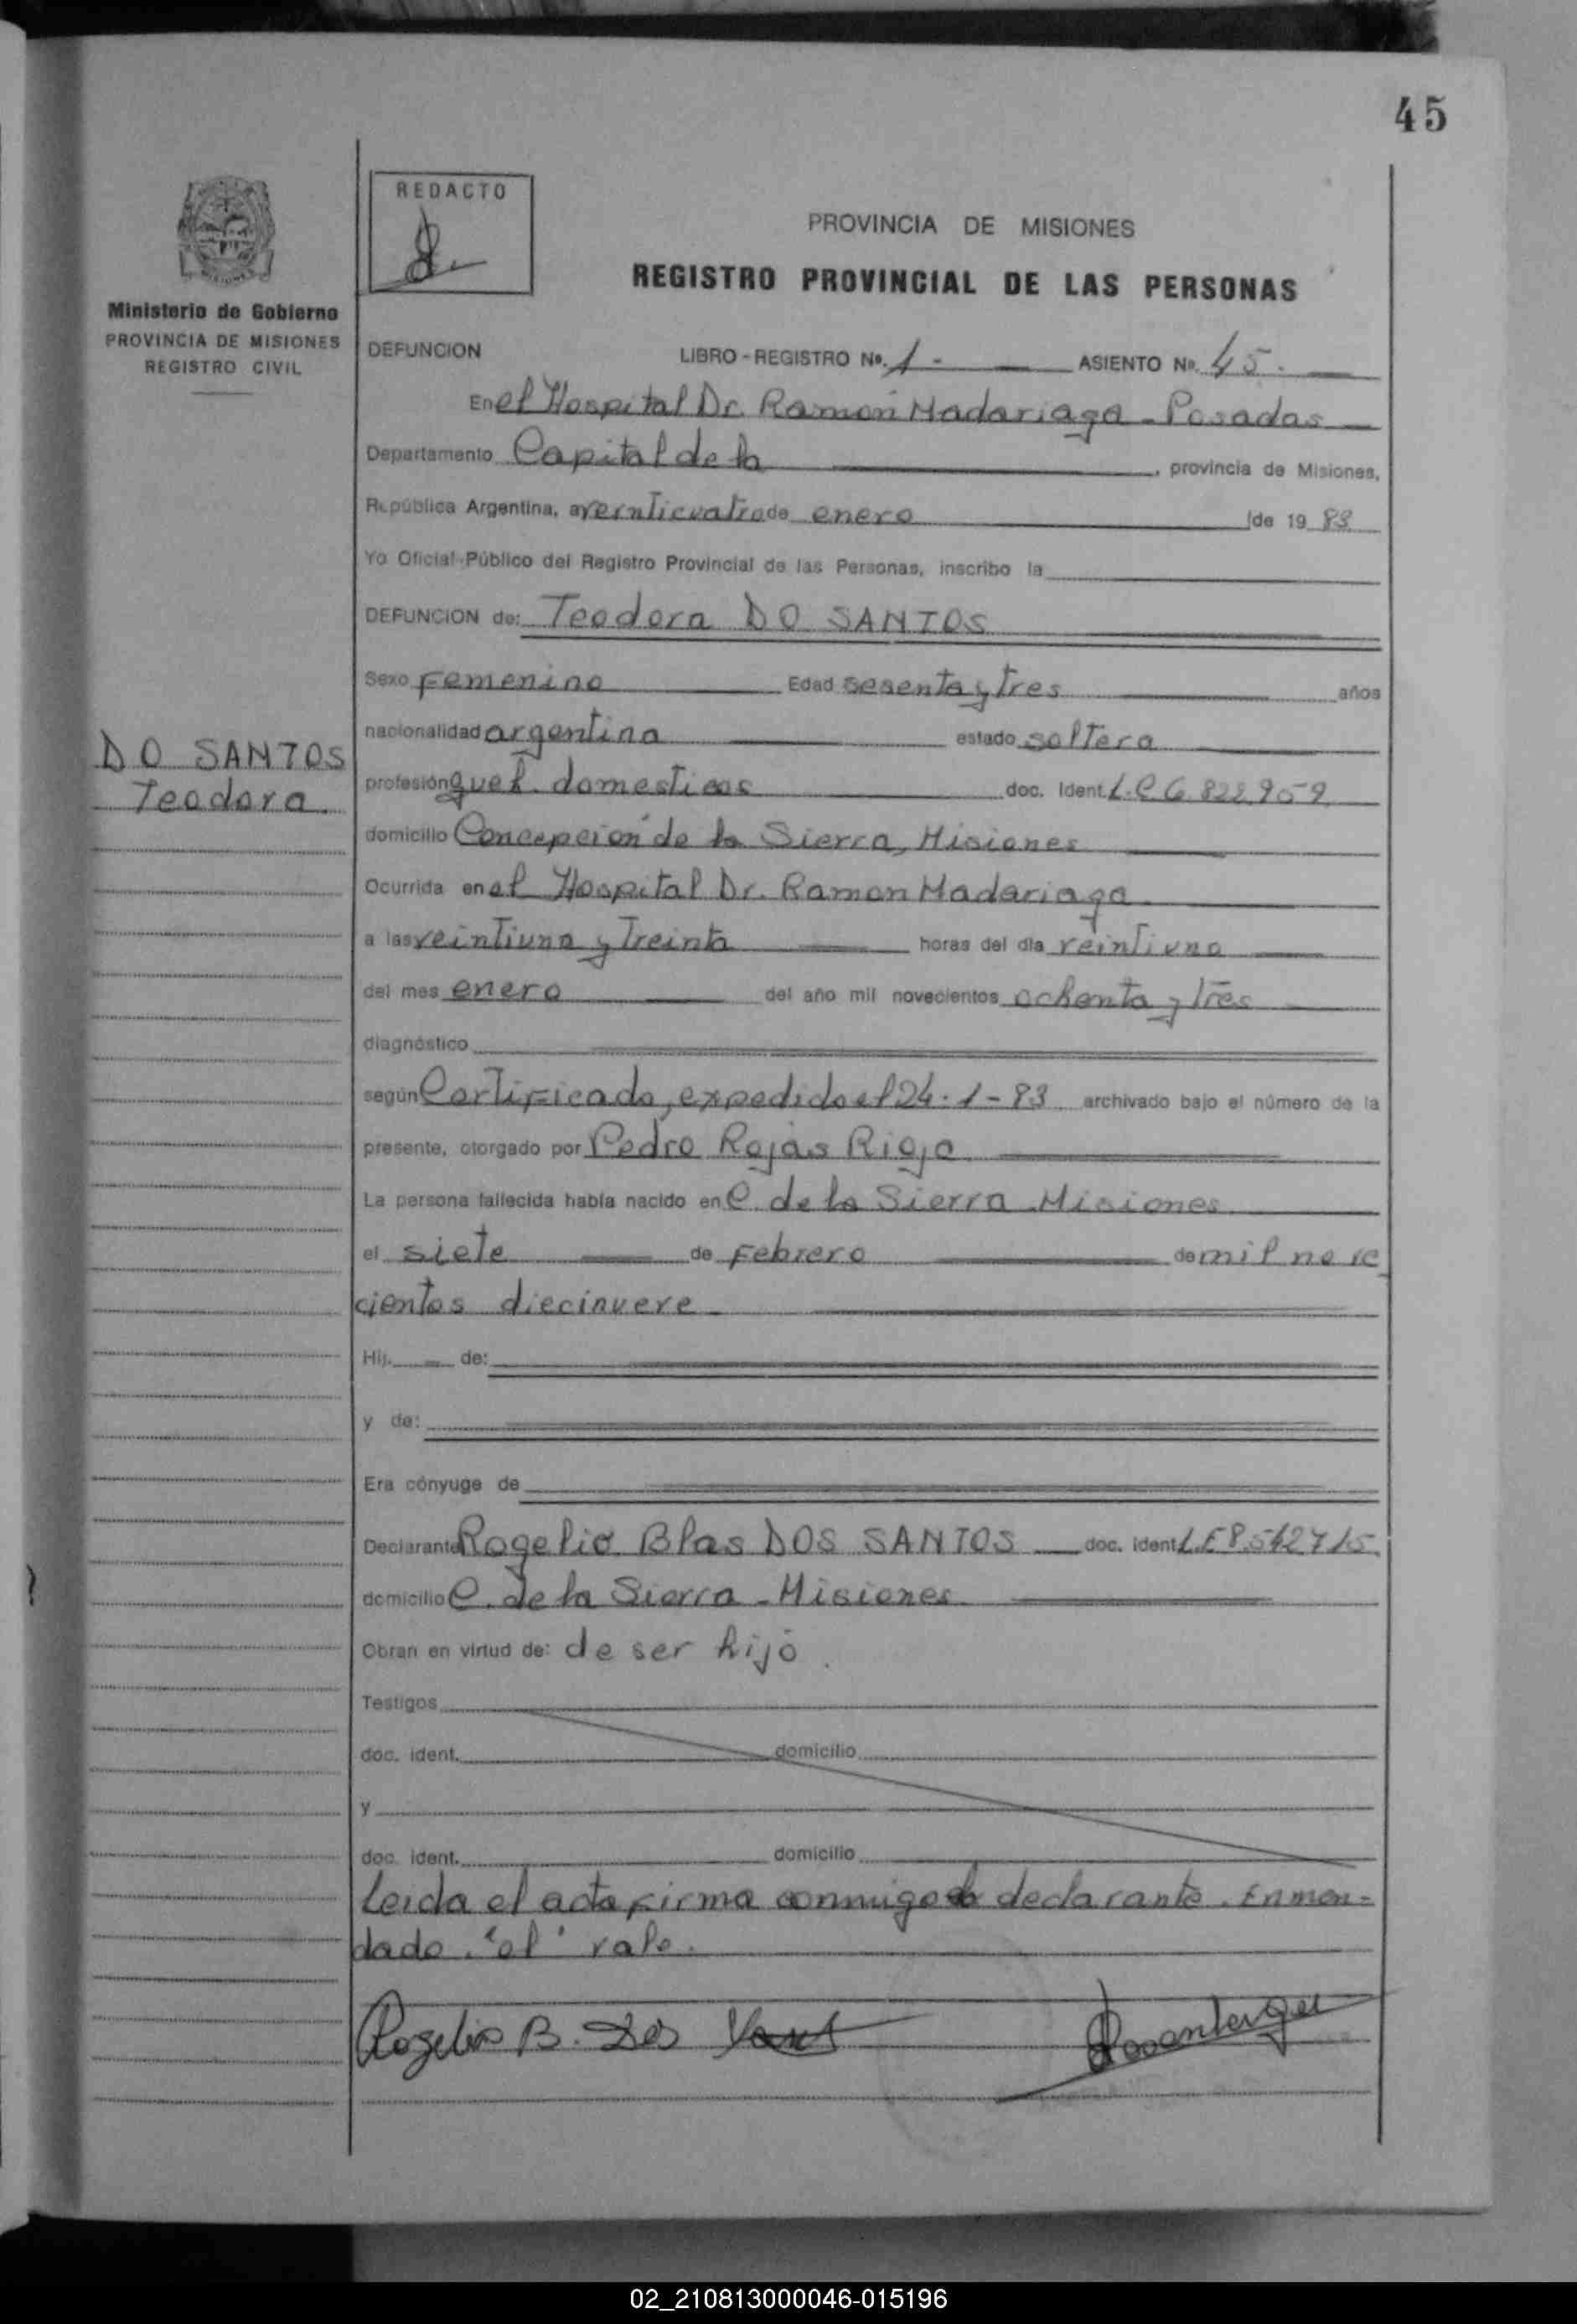 45
REDACTO
PROVINCIA DE MISIONES
REGISTRO PROVINCIAL DE LAS PERSONAS
Ministerio de Gobierno
PROVINCIA DE MISIONES
REGISTRO CIVIL
DEFUNCION LIBRO - REGISTRO Nº. 1 - ASIENTO Nº. 45.
En el Hospital Dr. Ramón Madariaga - Posadas
Departamento Capital de la , provincia de Misiones,
República Argentina, a veinticuatro de enero de 19 83
Yo Oficial Público del Registro Provincial de las Personas, inscribo la
DEFUNCION de: Teodora DO SANTOS
Sexo Femenino Edad sesenta y tres años
nacionalidad argentina estado soltera
DO SANTOS
Teodora.
profesión queh. domesticos doc. Ident. L.C 6.822.959
domicilio Concepción de la Sierra, Misiones
Ocurrida en el Hospital Dr. Ramon Madariaga
a las veintiuna y treinta horas del día veintiuno
del mes enero del año mil novecientos ochenta y tres
diagnóstico
según Certificado, expedido el 24-1-83 archivado bajo el número de la
presente, otorgado por Pedro Rojas Rioja
La persona fallecida había nacido en C. de la Sierra - Misiones
el siete de Febrero de mil nove
cientos diecinueve
Hij. de:
y de:
Era cónyuge de
Declarante Rogelio Blas DOS SANTOS doc. ident L.E 8.542715
domicilio C. de la Sierra - Misiones
Obran en virtud de: de ser hijo.
Testigos
doc. ident. domicilio
y
doc. ident. domicilio
Leida el acta firma conmigo el declarante. Enmen-
dado. "el" vale.
Rogelio B. Dos
02_210813000046-015196